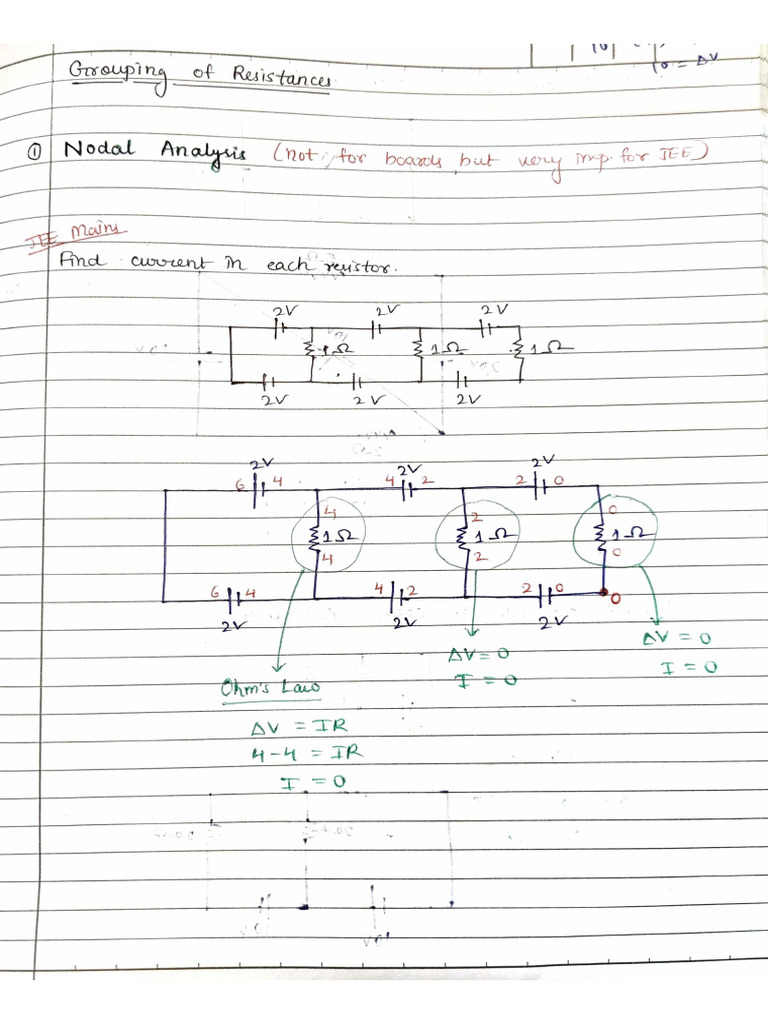 10 = ΔV
Grouping of Resistances
① Nodal Analysis (not for boards but very imp. for JEE)
JEE Mains
Find current in each resistor.
2V 2V 2V
1Ω 1Ω 1Ω
2V 2V 2V
2V 2V 2V
6 4 4 2 2 0
4 2 0
1Ω 1Ω 1Ω
4 2 0
6 4 4 2 2 0 0
2V 2V 2V
ΔV = 0 ΔV = 0
I = 0 I = 0
Ohm's Law
ΔV = IR
4-4 = IR
I = 0